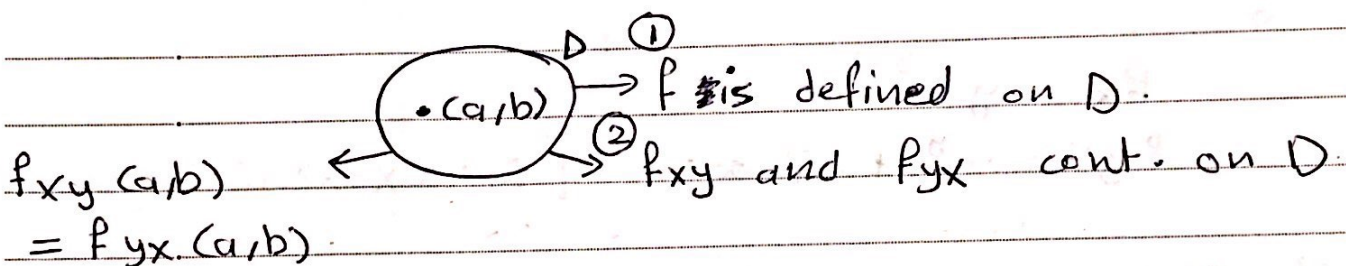 D ①
• (a,b) → f is defined on D.
② fxy and fyx cont. on D
fxy (a,b)
= fyx.(a,b)